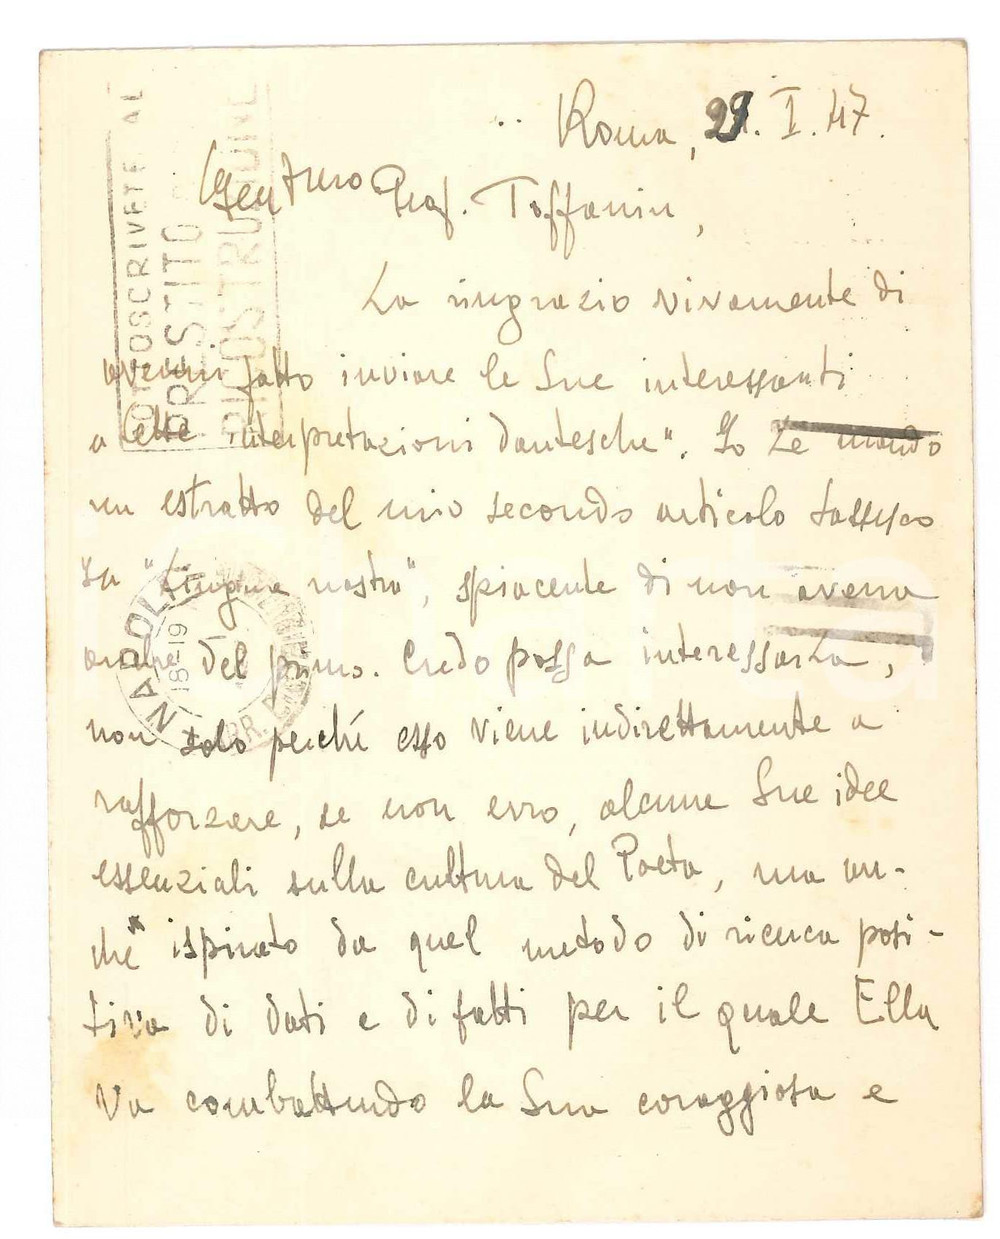 Roma, 29.I.47.
Gentmo Prof. Toffanin,
La ringrazio vivamente di
avermi fatto inviare le Sue interessanti
"Sette interpretazioni dantesche". Io Le mando
un estratto del mio secondo articolo tassesco
su "Lingua nostra", spiacente di non averne
anche del primo. Credo possa interessarLa,
non solo perché esso viene indirettamente a
rafforzare, se non erro, alcune Sue idee
essenziali sulla cultura del Poeta, ma an-
che ispirato da quel metodo di ricerca posi-
tiva di dati e di fatti per il quale Ella
va combattendo la Sua coraggiosa e
SOTTOSCRIVETE AL
PRESTITO
RICOSTRUZIONE
NAPOLI
18-19